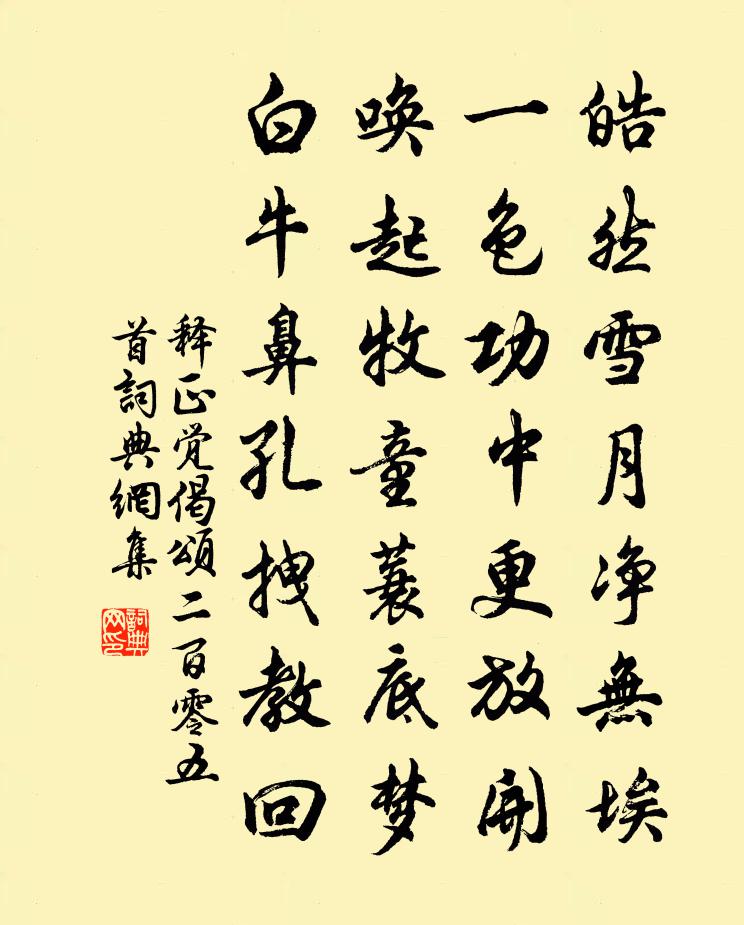 皓然雪月净無埃
一色功中更放開
唤起牧童蓑底梦
白牛鼻孔拽教回
释正覚偈頌二百零五
首詞典網集
詞典网印